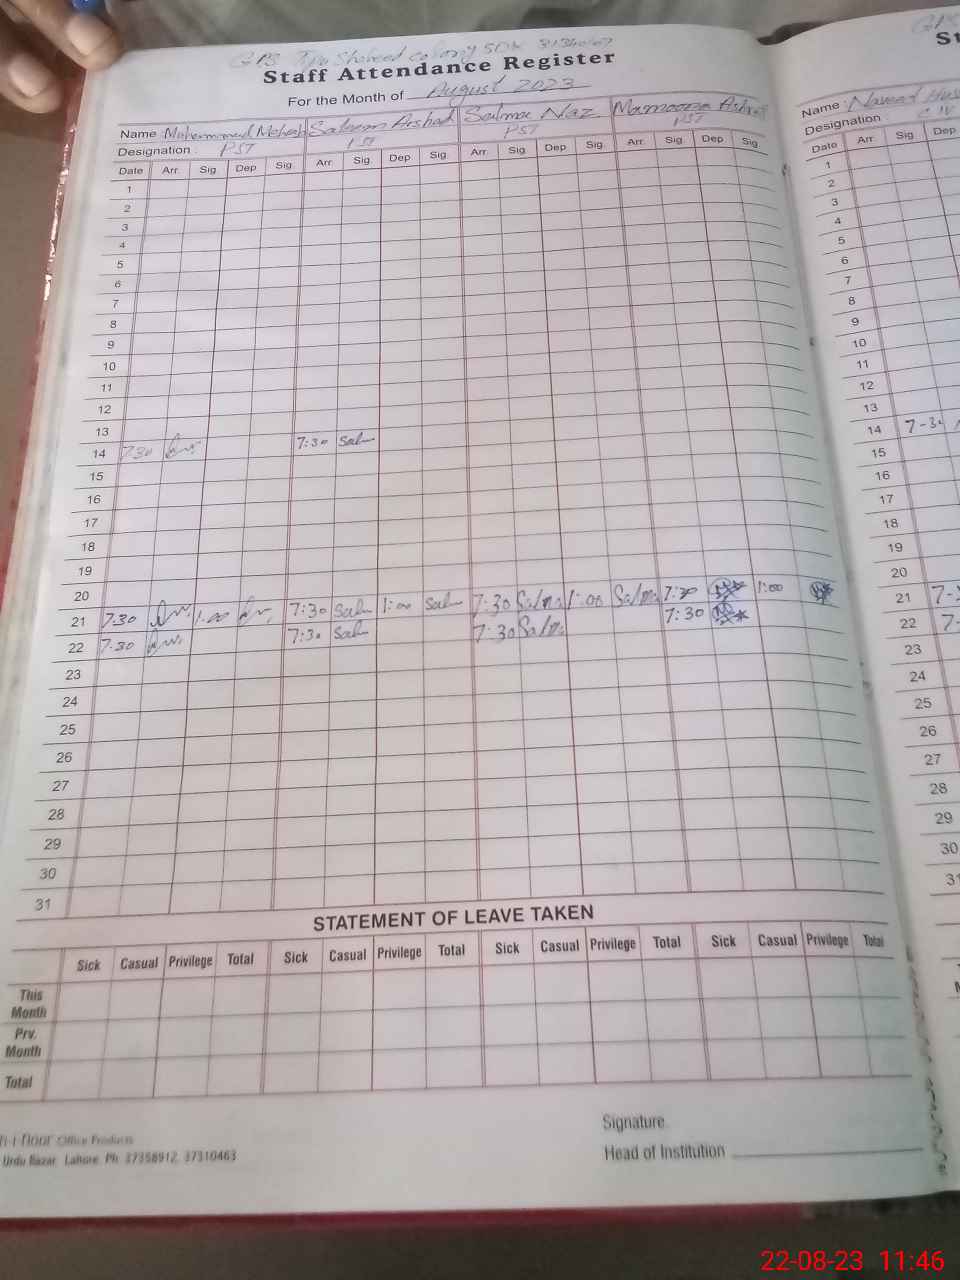 GPS Shaheed colony SDK
Staff Attendance Register
For the Month of August 2023
Name : Mohammad Saleem Arshad Salma Naz Mamoona Arshad
Designation : PST PST PST PST
Date Arr. Sig. Dep Sig. Arr. Sig. Dep Sig. Arr. Sig. Dep Sig. Arr. Sig. Dep Sig.
1
2
3
4
5
6
7
8
9
10
11
12
13
14 7:30 7:30 Sal
15
16
17
18
19
20
21 7.30 1.00 7:30 Sal 1:00 Sal 7:30 Salma 1:00 Salma 7:30 1:00
22 7.30 7:30 Sal 7:30 Salma 7:30
23
24
25
26
27
28
29
30
31
STATEMENT OF LEAVE TAKEN
Sick Casual Privilege Total Sick Casual Privilege Total Sick Casual Privilege Total Sick Casual Privilege Total
This Month
Prv. Month
Total
Office Products
Urdu Bazar, Lahore. Ph: 37358912, 37310463
Signature.
Head of Institution
Name : Naveed
Designation :
Date Arr. Sig. Dep
1
2
3
4
5
6
7
8
9
10
11
12
13
14 7-30
15
16
17
18
19
20
21
22
23
24
25
26
27
28
29
30
31
22-08-23 11:46